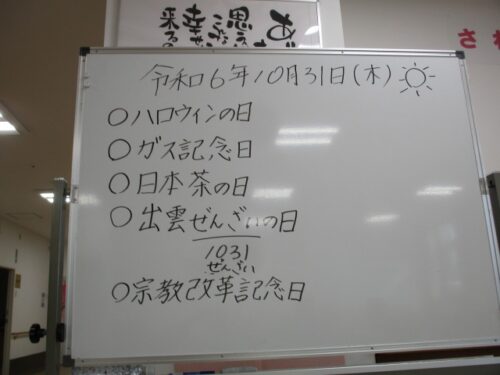 令和6年10月31日(木)
○ハロウィンの日
○ガス記念日
○日本茶の日
○出雲ぜんざいの日
1031
ぜんざい
○宗教改革記念日